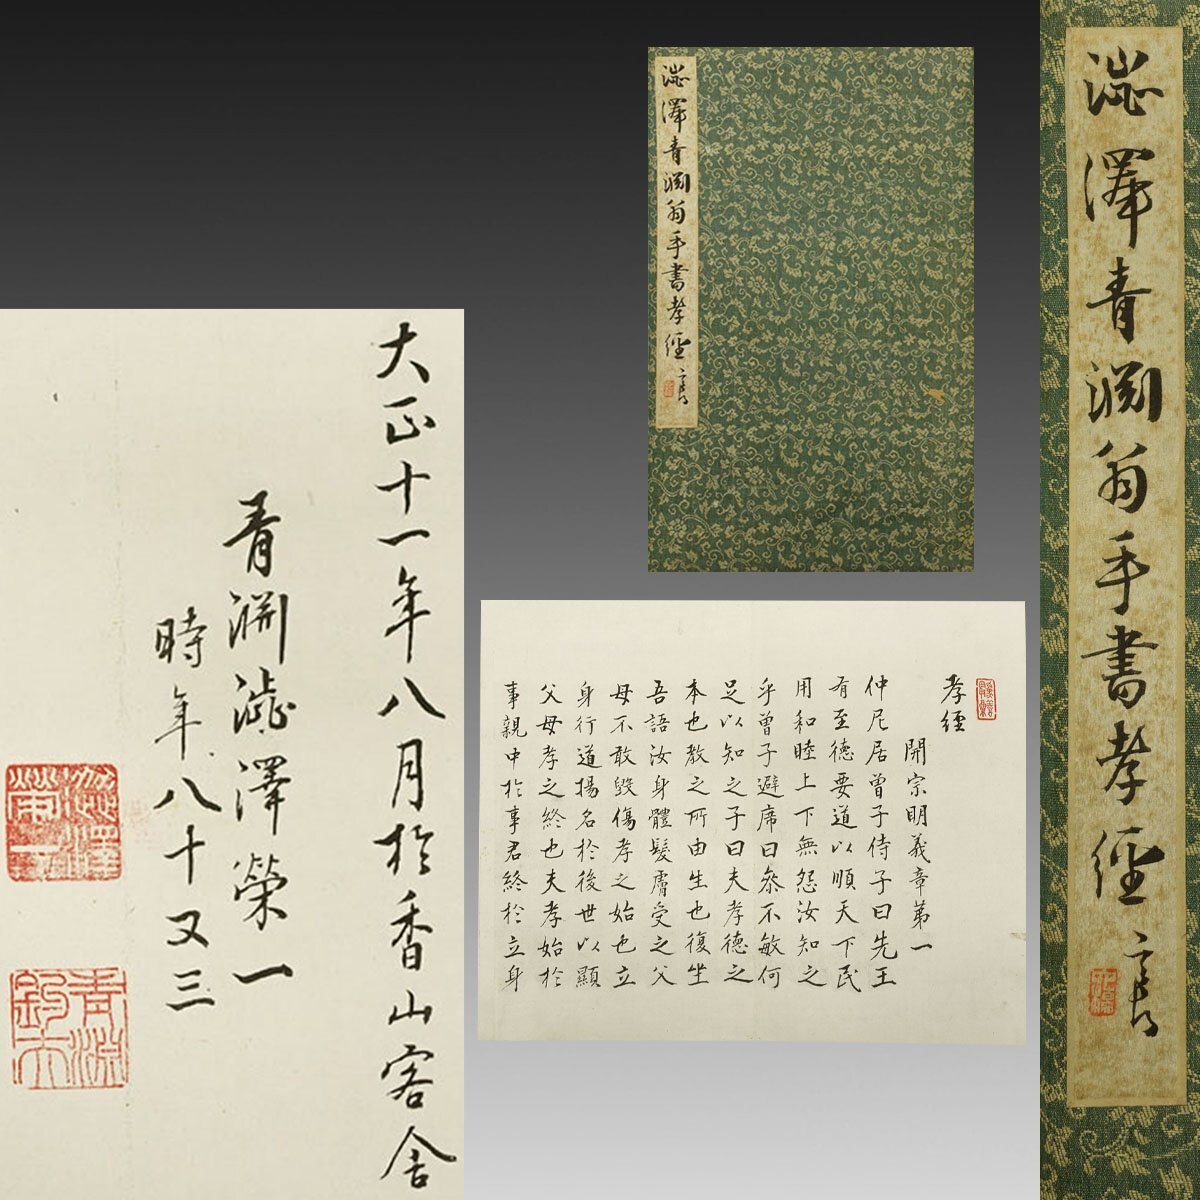 澁澤青淵翁手書孝經
澁澤青淵翁手書孝經
孝經
開宗明義章第一
仲尼居曾子侍子曰先王
有至德要道以順天下民
用和睦上下無怨汝知之
乎曾子避席曰參不敏何
足以知之子曰夫孝德之
本也教之所由生也復坐
吾語汝身體髮膚受之父
母不敢毀傷孝之始也立
身行道揚名於後世以顯
父母孝之終也夫孝始於
事親中於事君終於立身
大正十一年八月於香山客舍
青淵澁澤榮一
時年八十又三
澁澤榮一